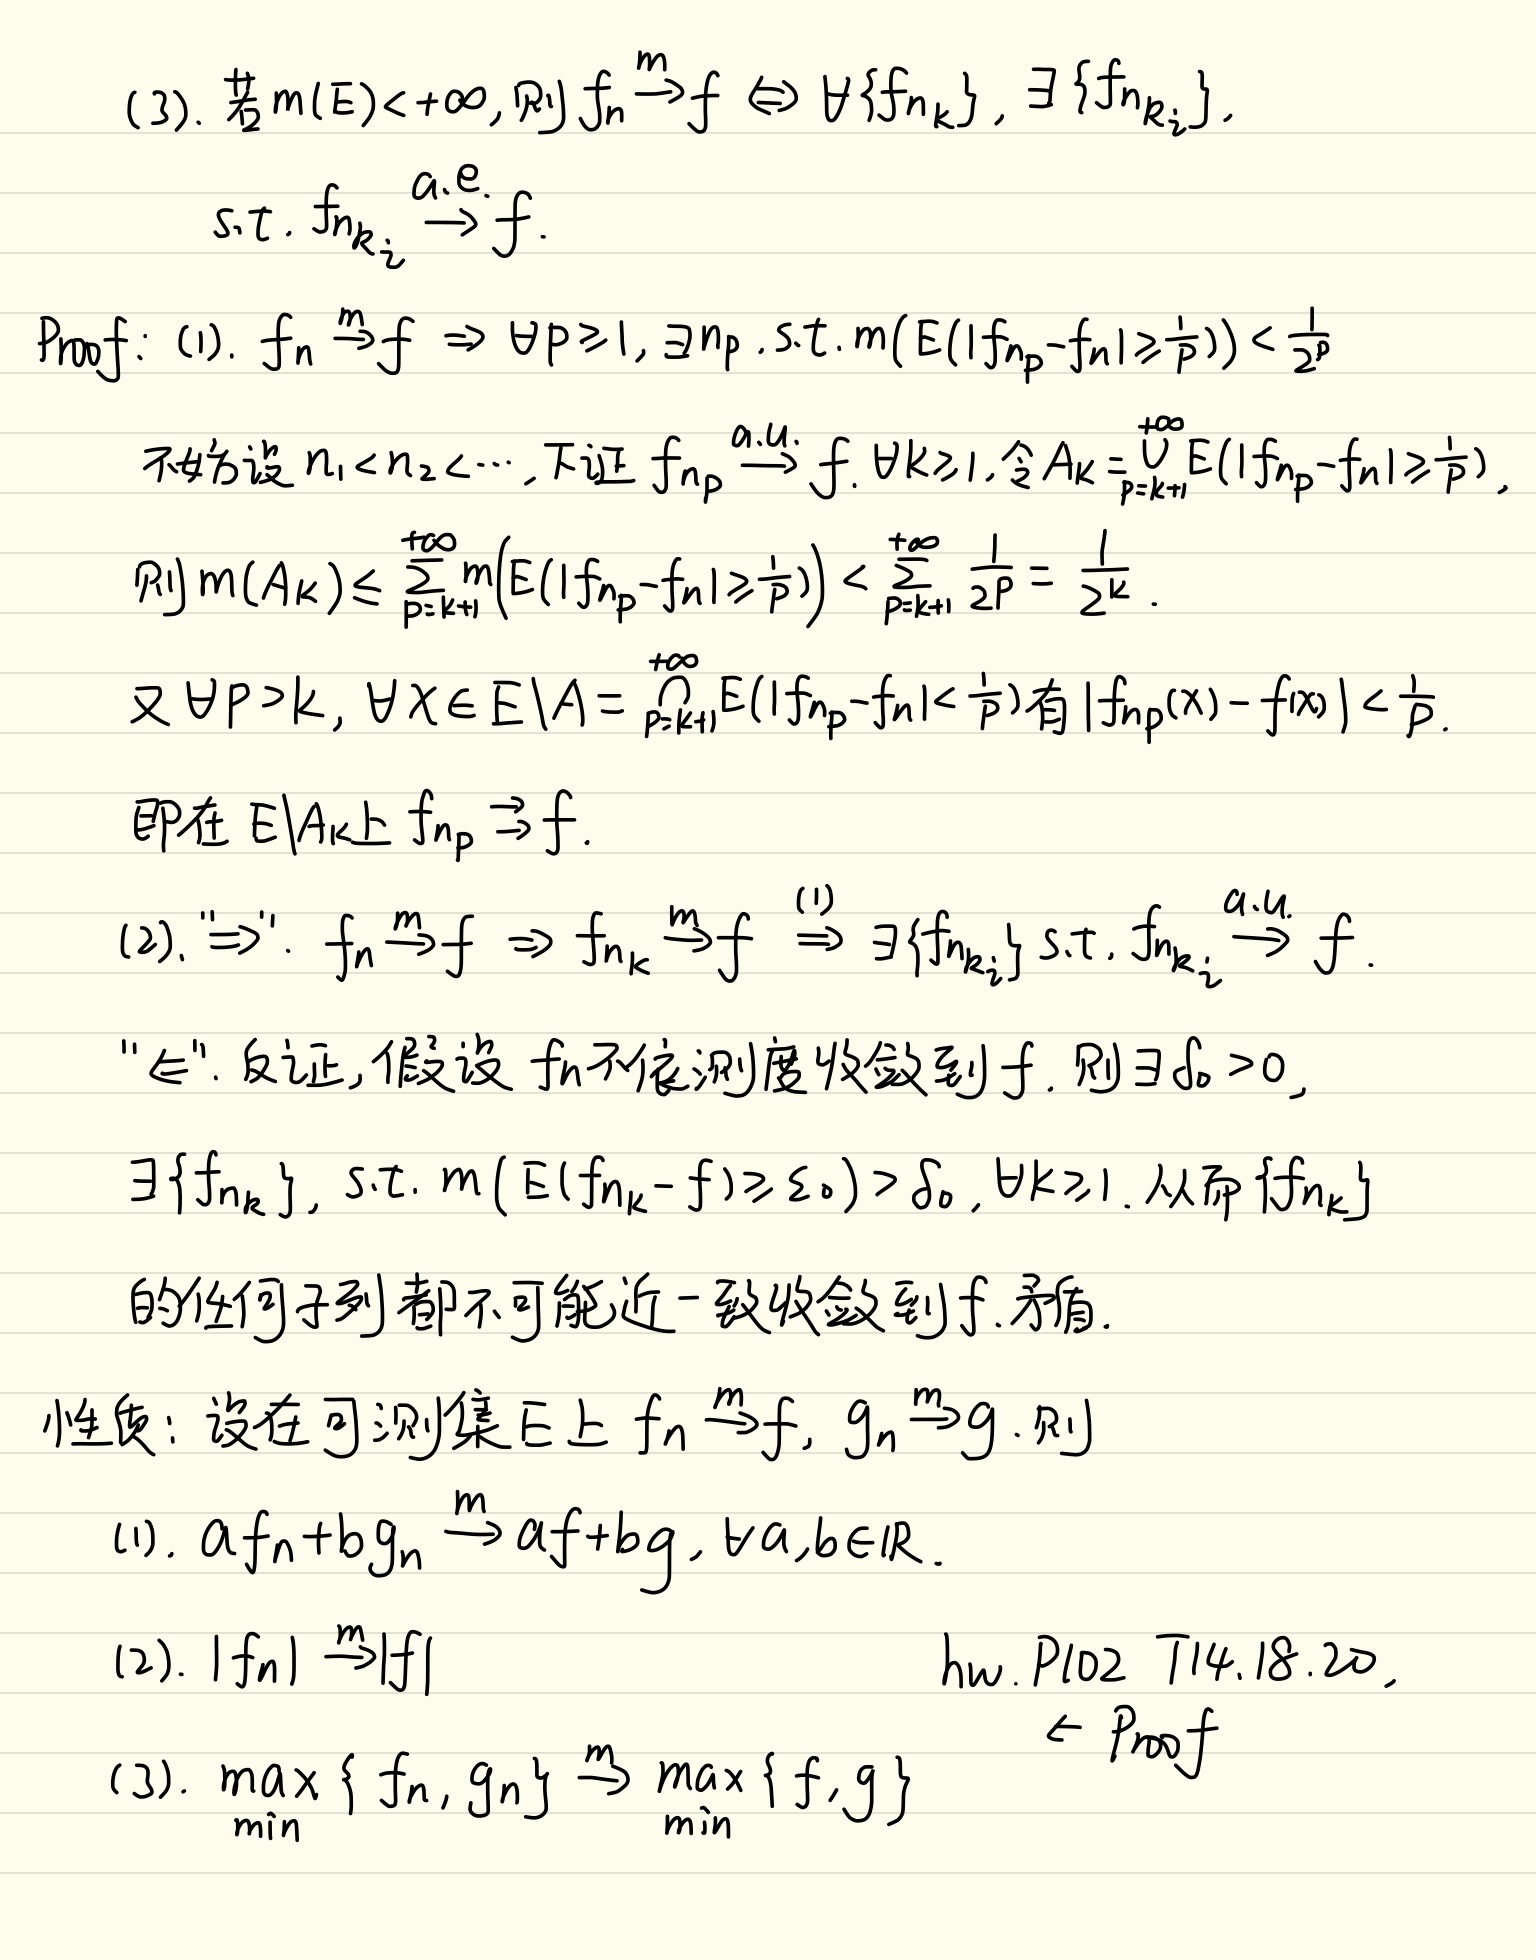 (3). 若 m(E)<+∞, 则 f_n \xrightarrow{m} f ⇔ ∀{f_{n_k}}, ∃{f_{n_{k_i}}},
s.t. f_{n_{k_i}} \xrightarrow{a.e.} f.
Proof: (1). f_n \xrightarrow{m} f ⇒ ∀p≥1, ∃n_p. s.t. m(E(|f_{n_p}-f_n|≥\frac{1}{p})) < \frac{1}{2^p}
不妨设 n_1<n_2<⋯, 下证 f_{n_p} \xrightarrow{a.u.} f. ∀k≥1, 令 A_k = \bigcup_{p=k+1}^{+∞} E(|f_{n_p}-f_n|≥\frac{1}{p}),
则 m(A_k) ≤ \sum_{p=k+1}^{+∞} m(E(|f_{n_p}-f_n|≥\frac{1}{p})) < \sum_{p=k+1}^{+∞} \frac{1}{2^p} = \frac{1}{2^k}.
又 ∀p>k, ∀x∈E\A = \bigcap_{p=k+1}^{+∞} E(|f_{n_p}-f_n|<\frac{1}{p}) 有 |f_{n_p}(x)-f(x)| < \frac{1}{p}.
即在 E\A_k 上 f_{n_p} ⇉ f.
(2). "⇒". f_n \xrightarrow{m} f ⇒ f_{n_k} \xrightarrow{m} f \overset{(1)}{⇒} ∃{f_{n_{k_i}}} s.t. f_{n_{k_i}} \xrightarrow{a.u.} f.
"⇐". 反证, 假设 f_n 不依测度收敛到 f. 则 ∃δ_0>0,
∃{f_{n_k}}, s.t. m(E(f_{n_k}-f)≥ε_0)>δ_0, ∀k≥1. 从而 {f_{n_k}}
的任何子列都不可能近一致收敛到 f. 矛盾.
性质: 设在可测集 E 上 f_n \xrightarrow{m} f, g_n \xrightarrow{m} g. 则
(1). af_n+bg_n \xrightarrow{m} af+bg, ∀a,b∈ℝ.
(2). |f_n| \xrightarrow{m} |f|
hw. P102 T14.18.20,
← Proof
(3). max {f_n, g_n} \xrightarrow{m} max {f, g}
min min